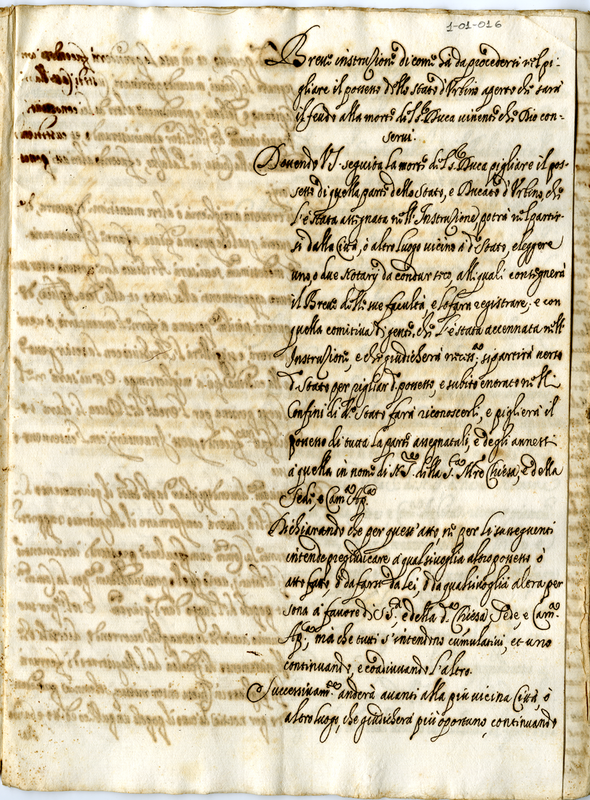 1-01-016
Breve instruzione di come sà da procedersi nel pi-
gliare il possesso dello Stato d'Urbino aperto che sarà
il feudo alla morte di S. Duca vivente che Dio con-
servi.
Dovendo V.S. seguita la morte di S. Duca pigliare il pos-
sesso di quella parte dello Stato, e Ducato d'Urbino, che
l'è stata assignata nell'Instruzione, potrà nel partir-
si dalla Città, ò altro luogo vicino à d. Stato, eleggere
uno, o due Notary da condur seco, alli quali consegnerà
il Breve delle sue facultà, e lo farà registrare; e con
quella comitiva di gente, che l'è stata accennata nell'
Instruzione, e che giudicherà necess.; si partirà verso
d. Stato per pigliar d. possesso, e subito entrato nelli
Confini di d. Stato farà riconoscerli, e piglierà il
possesso di tutta la parte assegnatali, e degli annessi
à quella in nome di N.S. della S. Mre Chiesa, e della
Sede, e Cam. Ap.
Dichiarando che per quest'atto, ne per li susseguenti
intende pregiudicare à qualsivoglia altro possesso ò
atto fatto, ò da farsi da lei, ò da qualsivoglia altra per
sona à favore di S. S., e della d. Chiesa, Sede e Cam.
Ap., ma che tutti s'intendino cumulativi, et uno
continuando, e coadiuvando l'altro.
Successivam. anderà avanti alla più vicina Città, ò
altro luogo, che giudicherà più oportuno, continuando